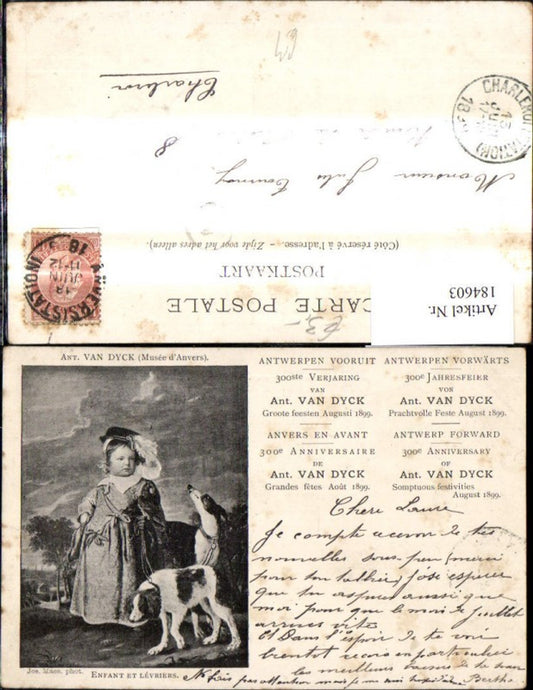 Charleroi
Monsieur Jules
8
(Côté réservé à l'adresse. — Zijde voor het adres alleen).
POSTKAART
CARTE POSTALE
63,-
Artikel Nr.
184603
ANVERS (STATION)
18
JUIN
11-12
CHARLEROI (STATION)
Ant. VAN DYCK (Musée d'Anvers).
Jos. Maes. phot.
Enfant et lévriers.
ANTWERPEN VOORUIT
300ste Verjaring
VAN
Ant. VAN DYCK
Groote feesten Augusti 1899.
ANTWERPEN VORWÄRTS
300e Jahresfeier
VON
Ant. VAN DYCK
Prachtvolle Feste August 1899.
ANVERS EN AVANT
300e Anniversaire
DE
Ant. VAN DYCK
Grandes fêtes Août 1899.
ANTWERP FORWARD
300e Anniversary
OF
Ant. VAN DYCK
Somptuous festivities
August 1899.
Chere Laure
Je compte avoir de tes
nouvelles sous peu, merci
pour ton j'ose esperer
que tu esperes aussi que
moi pour que le mois de Juillet
arrives vite
Et Dans l'espoir de te voir
bientot recois en particulier
les meilleurs baisers de ta
Ne fais pas attention mais je me suis Berthe